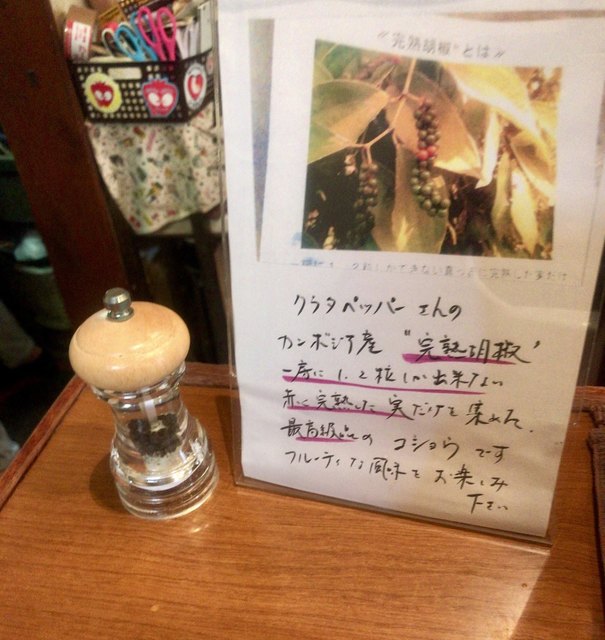 〝完熟胡椒〟とは
クラタペッパーさんの
カンボジア産〝完熟胡椒〟
一房に1、2粒しか出来ない
赤く完熟した実だけを集めた、
最高級品のコショウです
フルーティな風味をお楽しみ
下さい